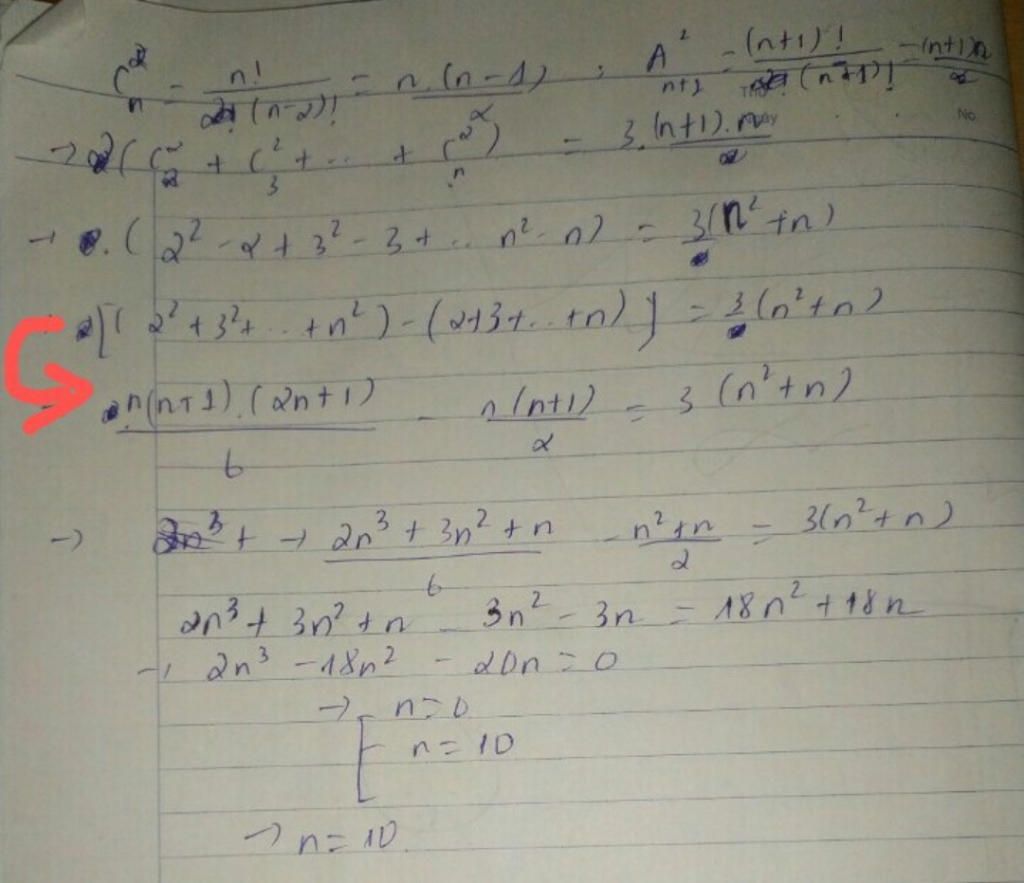 C²n = n! / 2!(n-2)! = n.(n-1) / 2 ; A²n+1 = (n+1)! / (n-1)! = (n+1)n
→ 2(C²2 + C²3 + ... + C²n) = 3.(n+1).n
→ (2² - 2 + 3² - 3 + .. n² - n) = 3(n² + n)
[(2² + 3² + .. + n²) - (2+3+..+n)] = 3(n² + n)
n(n+1).(2n+1) / 6 - n(n+1) / 2 = 3(n² + n)
→ → 2n³ + 3n² + n / 6 - n² + n / 2 = 3(n² + n)
2n³ + 3n² + n - 3n² - 3n = 18n² + 18n
→ 2n³ - 18n² - 20n = 0
→ [ n = 0
n = 10
→ n = 10.